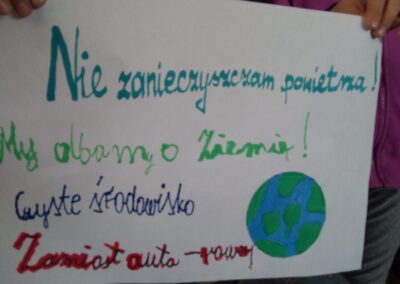 Nie zanieczyszczam powietrza!
My dbamy o Ziemię!
Czyste środowisko
Zamiast auta - rower